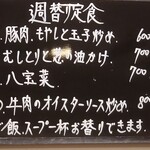 週替り定食
豚肉、もやしと玉子炒め 600
むしどりと葱の油かけ 700
八宝菜 700
牛肉のオイスターソース炒め 80
ン飯、スープ一杯お替りできます。